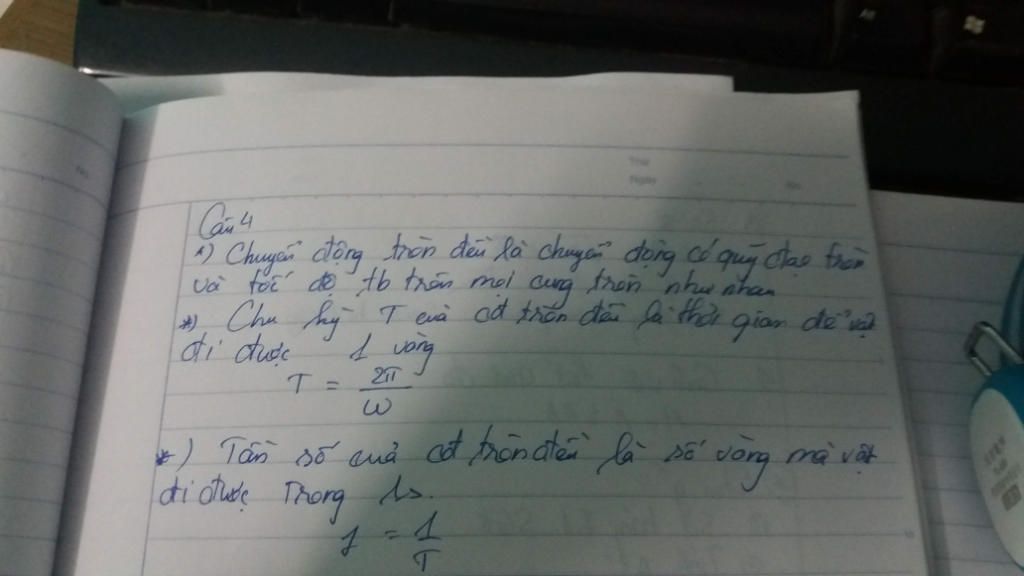 Thứ
Ngày
No.
Câu 4
*) Chuyển động tròn đều là chuyển động có quỹ đạo tròn
và tốc độ tb trên mọi cung tròn như nhau
*) Chu kỳ T của cđ tròn đều là thời gian để vật
đi được 1 vòng
T = 2π/ω
*) Tần số của cđ tròn đều là số vòng mà vật
đi được trong 1s.
f = 1/T